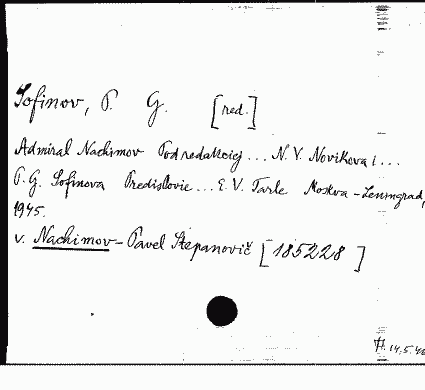 Sofinov, P. G. [red.]
Admiral Nachimov Pod redakciej ... N. V. Novikova i ...
P. G. Sofinova Predislovie ... E. V. Tarle Moskva - Leningrad,
1945.
v. Nachimov - Pavel Stepanovič [185228]
14.5.46